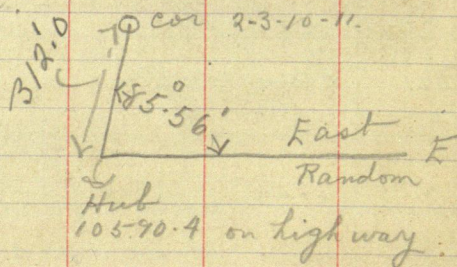 cor 2-3-10-11.
312.0
85°.56'
East E
Random
Hub
10590.4 on highway.